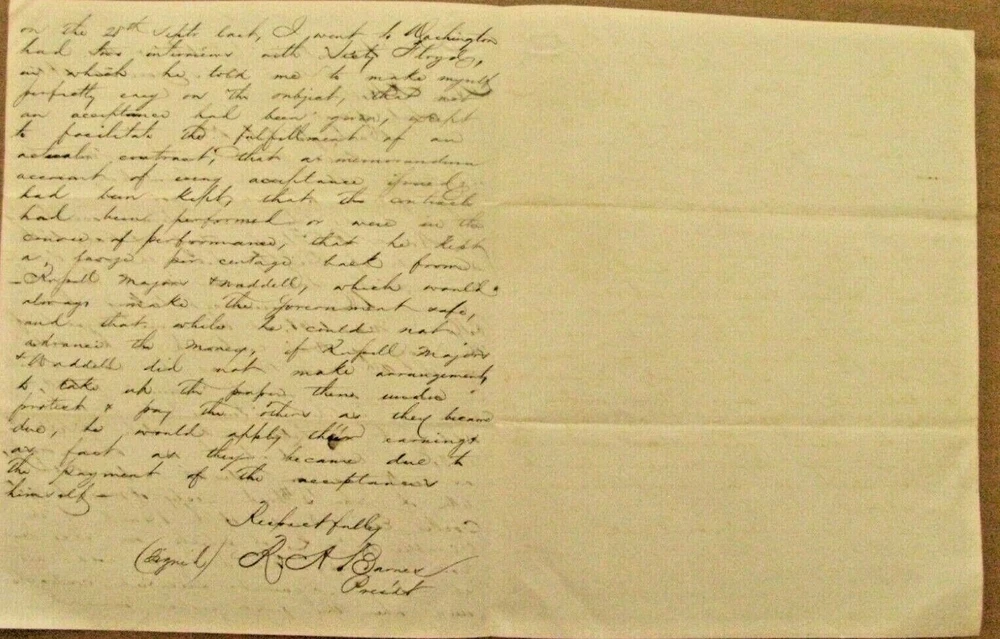 on the 28th Septr last, I went to Washington
had two interviews with Secty Floyd,
in which he told me to make myself
perfectly easy on the subject, that not
an acceptance had been given, except
to facilitate the fulfillment of an
actual contract, that a memorandum
account of every acceptance issued
had been kept, that the contracts
had been performed or were in the
course of performance, that he kept
a large per centage back from
Russell Majors & Waddell, which would
always make the Government safe,
and that while he could not
advance the money, if Russell Majors
& Waddell did not make arrangements
to take up the paper then under
protest & pay the others as they became
due, he would apply their earnings
as fast as they became due to
the payment of the acceptances
himself —
Respectfully
(Signed) R. A. Barnes
Presdt